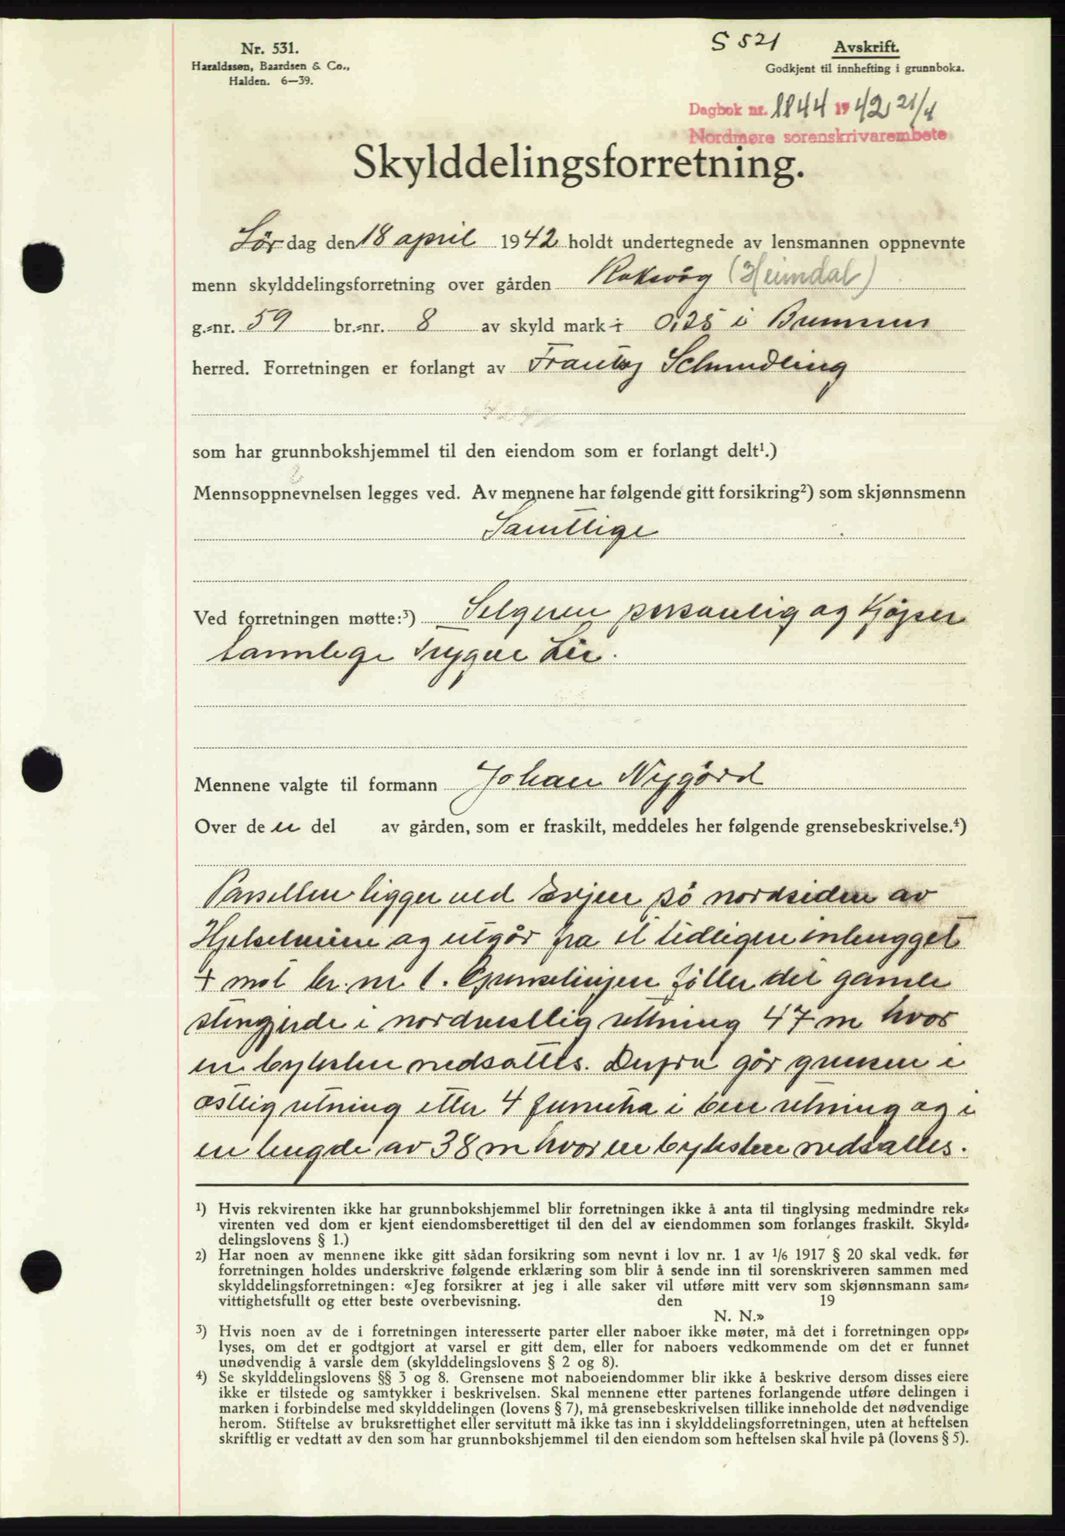 Nr. 531.
Haraldssen, Baardsen & Co.,
Halden. 6—39.
S 521
Avskrift.
Godkjent til innhefting i grunnboka.
Dagbok nr. 1844 1942 21/4
Nordmøre sorenskrivarembete
Skylddelingsforretning.
Lørdag den 18 april 1942 holdt undertegnede av lensmannen oppnevnte
menn skylddelingsforretning over gården Roksvåg (Heimdal)
g.=nr. 59 br.=nr. 8 av skyld mark 0,25 i Bremsnes
herred. Forretningen er forlangt av Frantz Schmidling
som har grunnbokshjemmel til den eiendom som er forlangt delt¹.)
Mennsoppnevnelsen legges ved. Av mennene har følgende gitt forsikring²) som skjønnsmenn
Samtlige
Ved forretningen møtte:³) Selgeren personlig og Kjøper
Trygve Lie.
Mennene valgte til formann Johan Nygård
Over de n del av gården, som er fraskilt, meddeles her følgende grensebeskrivelse.⁴)
Parsellen ligger ved på nordsiden av
og utgår fra et tidligere innhugget
+ mot br. nr 1. Grenselinjen føller det gamle
stengjerde i nordvestlig rettning 47 m hvor
en byksten nedsattes. Derfra går grensen i
østlig retning etter 4 i ben retning og i
en lengde av 38 m hvor en byksten nedsattes.
¹) Hvis rekvirenten ikke har grunnbokshjemmel blir forretningen ikke å anta til tinglysing medmindre rek=
virenten ved dom er kjent eiendomsberettiget til den del av eiendommen som forlanges fraskilt. Skyld=
delingslovens § 1.)
²) Har noen av mennene ikke gitt sådan forsikring som nevnt i lov nr. 1 av 1/6 1917 § 20 skal vedk. før
forretningen holdes underskrive følgende erklæring som blir å sende inn til sorenskriveren sammen med
skylddelingsforretningen: «Jeg forsikrer at jeg i alle saker vil utføre mitt verv som skjønnsmann sam=
vittighetsfullt og etter beste overbevisning. den 19
N. N.»
³) Hvis noen av de i forretningen interesserte parter eller naboer ikke møter, må det i forretningen opp=
lyses, om det er godtgjort at varsel er gitt dem, eller for naboers vedkommende om det er funnet
unødvendig å varsle dem (skylddelingslovens § 2 og 8).
⁴) Se skylddelingslovens §§ 3 og 8. Grensene mot naboeiendommer blir ikke å beskrive dersom disses eiere
ikke er tilstede og samtykker i beskrivelsen. Skal mennene etter partenes forlangende utføre delingen i
marken i forbindelse med skylddelingen (lovens § 7), må grensebeskrivelsen tillike inneholde det nødvendige
herom. Stiftelse av bruksrettighet eller servitutt må ikke tas inn i skylddelingsforretningen, uten at heftelsen
skriftlig er vedtatt av den som har grunnbokshjemmel til den eiendom som heftelsen skal hvile på (lovens § 5).